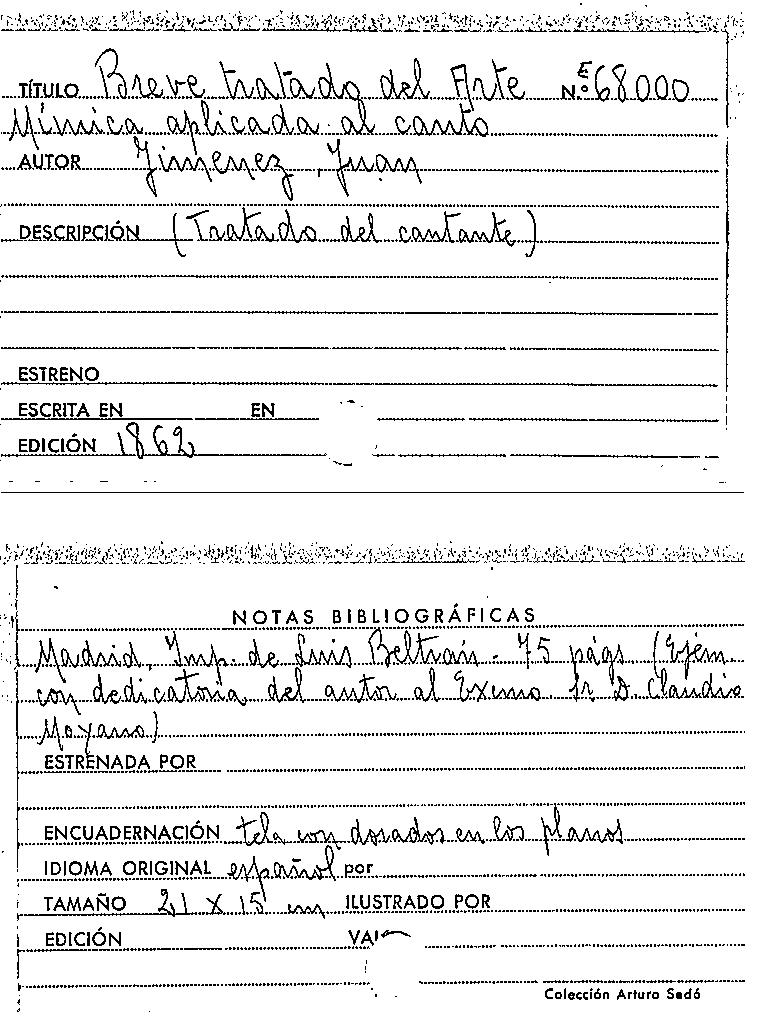 TÍTULO Breve tratado del Arte N.º E 68000
Mímica aplicada al canto
AUTOR Jimenez, Juan
DESCRIPCIÓN (Tratado del cantante)
ESTRENO
ESCRITA EN EN
EDICIÓN 1862
NOTAS BIBLIOGRÁFICAS
Madrid, Imp. de Luis Beltrán - 75 págs (Ejem.
con dedicatoria del autor al Exmo Sr D. Claudio
Moyano)
ESTRENADA POR
ENCUADERNACIÓN tela con dorados en los planos
IDIOMA ORIGINAL español por
TAMAÑO 21 X 15 cm ILUSTRADO POR
EDICIÓN
Colección Arturo Sedó